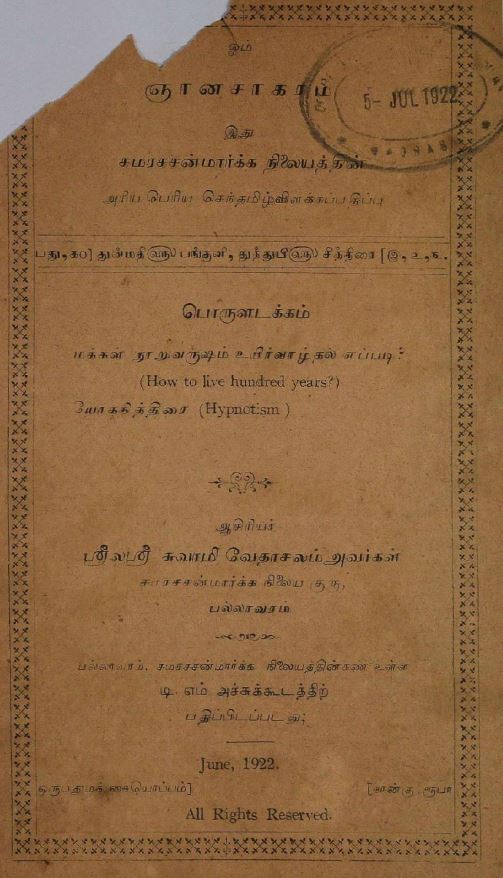 ஓம்
ஞானசாகரம்
5- JUL 1922
MADRAS
இது
சமரசசன்மார்க்க நிலையத்தின்
அரிய பெரிய செந்தமிழ்விளக்கப்பதிப்பு
துன்மதி௵ பங்குனி, துந்துபி௵ சித்திரை [க, உ, ௩.
பொருளடக்கம்
மக்கள் நூறுவருஷம் உயிர்வாழ்தல் எப்படி?
(How to live hundred years?)
யோகநித்திரை (Hypnotism)
ஆசிரியர்
ஸ்ரீலஸ்ரீ சுவாமி வேதாசலம் அவர்கள்
சமரசசன்மார்க்க நிலைய குரு,
பல்லாவரம்
பல்லாவரம், சமரசசன்மார்க்க நிலையத்தின்கண் உள்ள
டி. எம். அச்சுக்கூடத்திற்
பதிப்பிடப்பட்டது;
June, 1922.
[நான்கு ரூபா
All Rights Reserved.